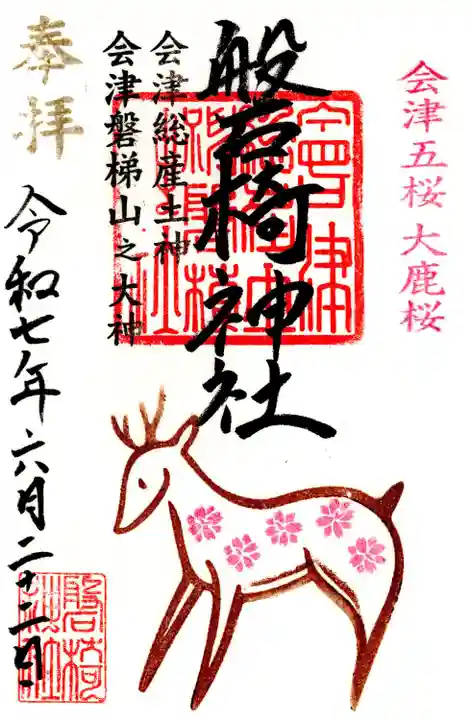 会津五桜 大鹿桜
磐椅神社
会津総産土神
会津磐梯山之大神
奉拝
令和七年六月二十二日
磐椅
神社